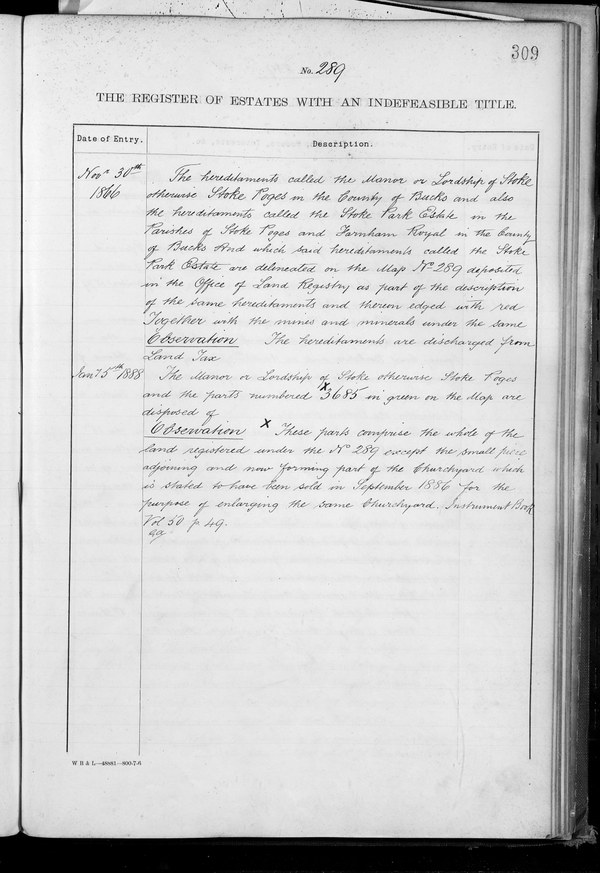 309
No. 289
THE REGISTER OF ESTATES WITH AN INDEFEASIBLE TITLE.
Date of Entry.
Description.
Novr 30th
1866
The hereditaments called the Manor or Lordship of Stoke
otherwise Stoke Poges in the County of Bucks and also
the hereditaments called the Stoke Park Estate in the
Parishes of Stoke Poges and Farnham Royal in the County
of Bucks And which said hereditaments called the Stoke
Park Estate are delineated on the Map No 289 deposited
in the Office of Land Registry as part of the description
of the same hereditaments and thereon edged with red
Together with the mines and minerals under the same
Observation The hereditaments are discharged from
Land Tax
Jany 5th 1888
The Manor or Lordship of Stoke otherwise Stoke Poges
and the parts numbered x 3685 in green on the Map are
disposed of
Observation x These parts comprise the whole of the
land registered under the No 289 except the small piece
adjoining and now forming part of the Churchyard which
is stated to have been sold in September 1886 for the
purpose of enlarging the same Churchyard. Instrument Book
Vol 50 p. 49.
W B & L—48881—800-7-6